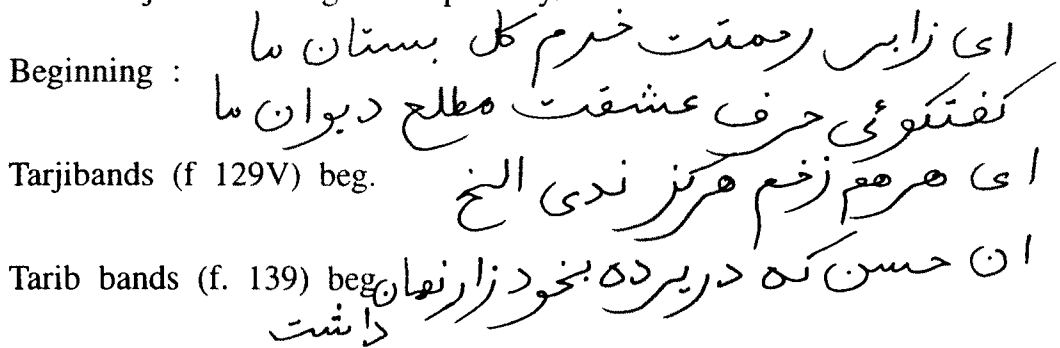 ای زابر رحمتت خرم کل بستان ما
Beginning :
کفتکوئی حرف عشقت مطلع دیوان ما
Tarjibands (f 129V) beg. ای مرهم زخم هرکز ندی الخ
Tarib bands (f. 139) beg ان حسن که در پرده بخود زار نهان
داشت